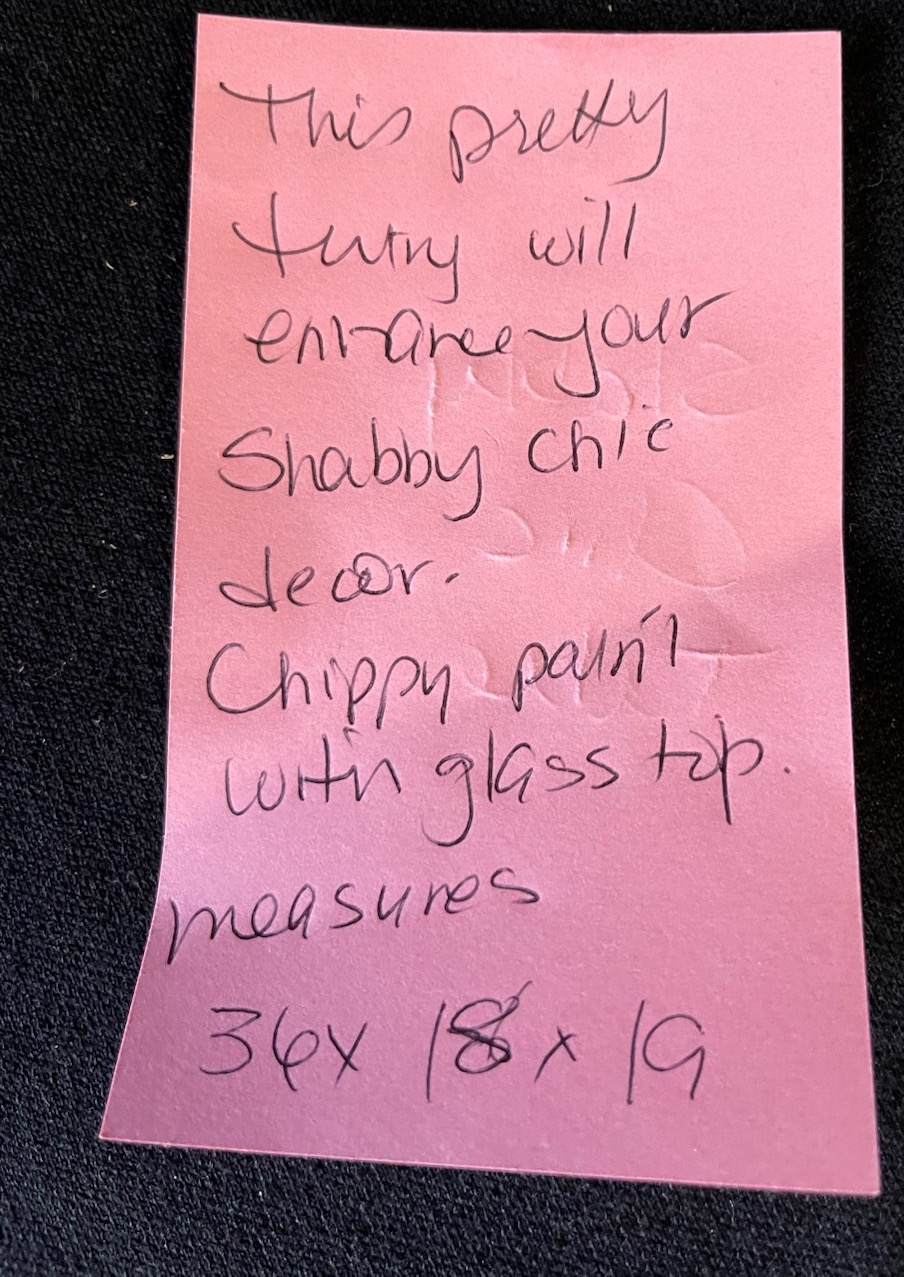 This pretty
will
your
Shabby chic
decor.
Chippy paint
with glass top.
measures
36x 18 x 19